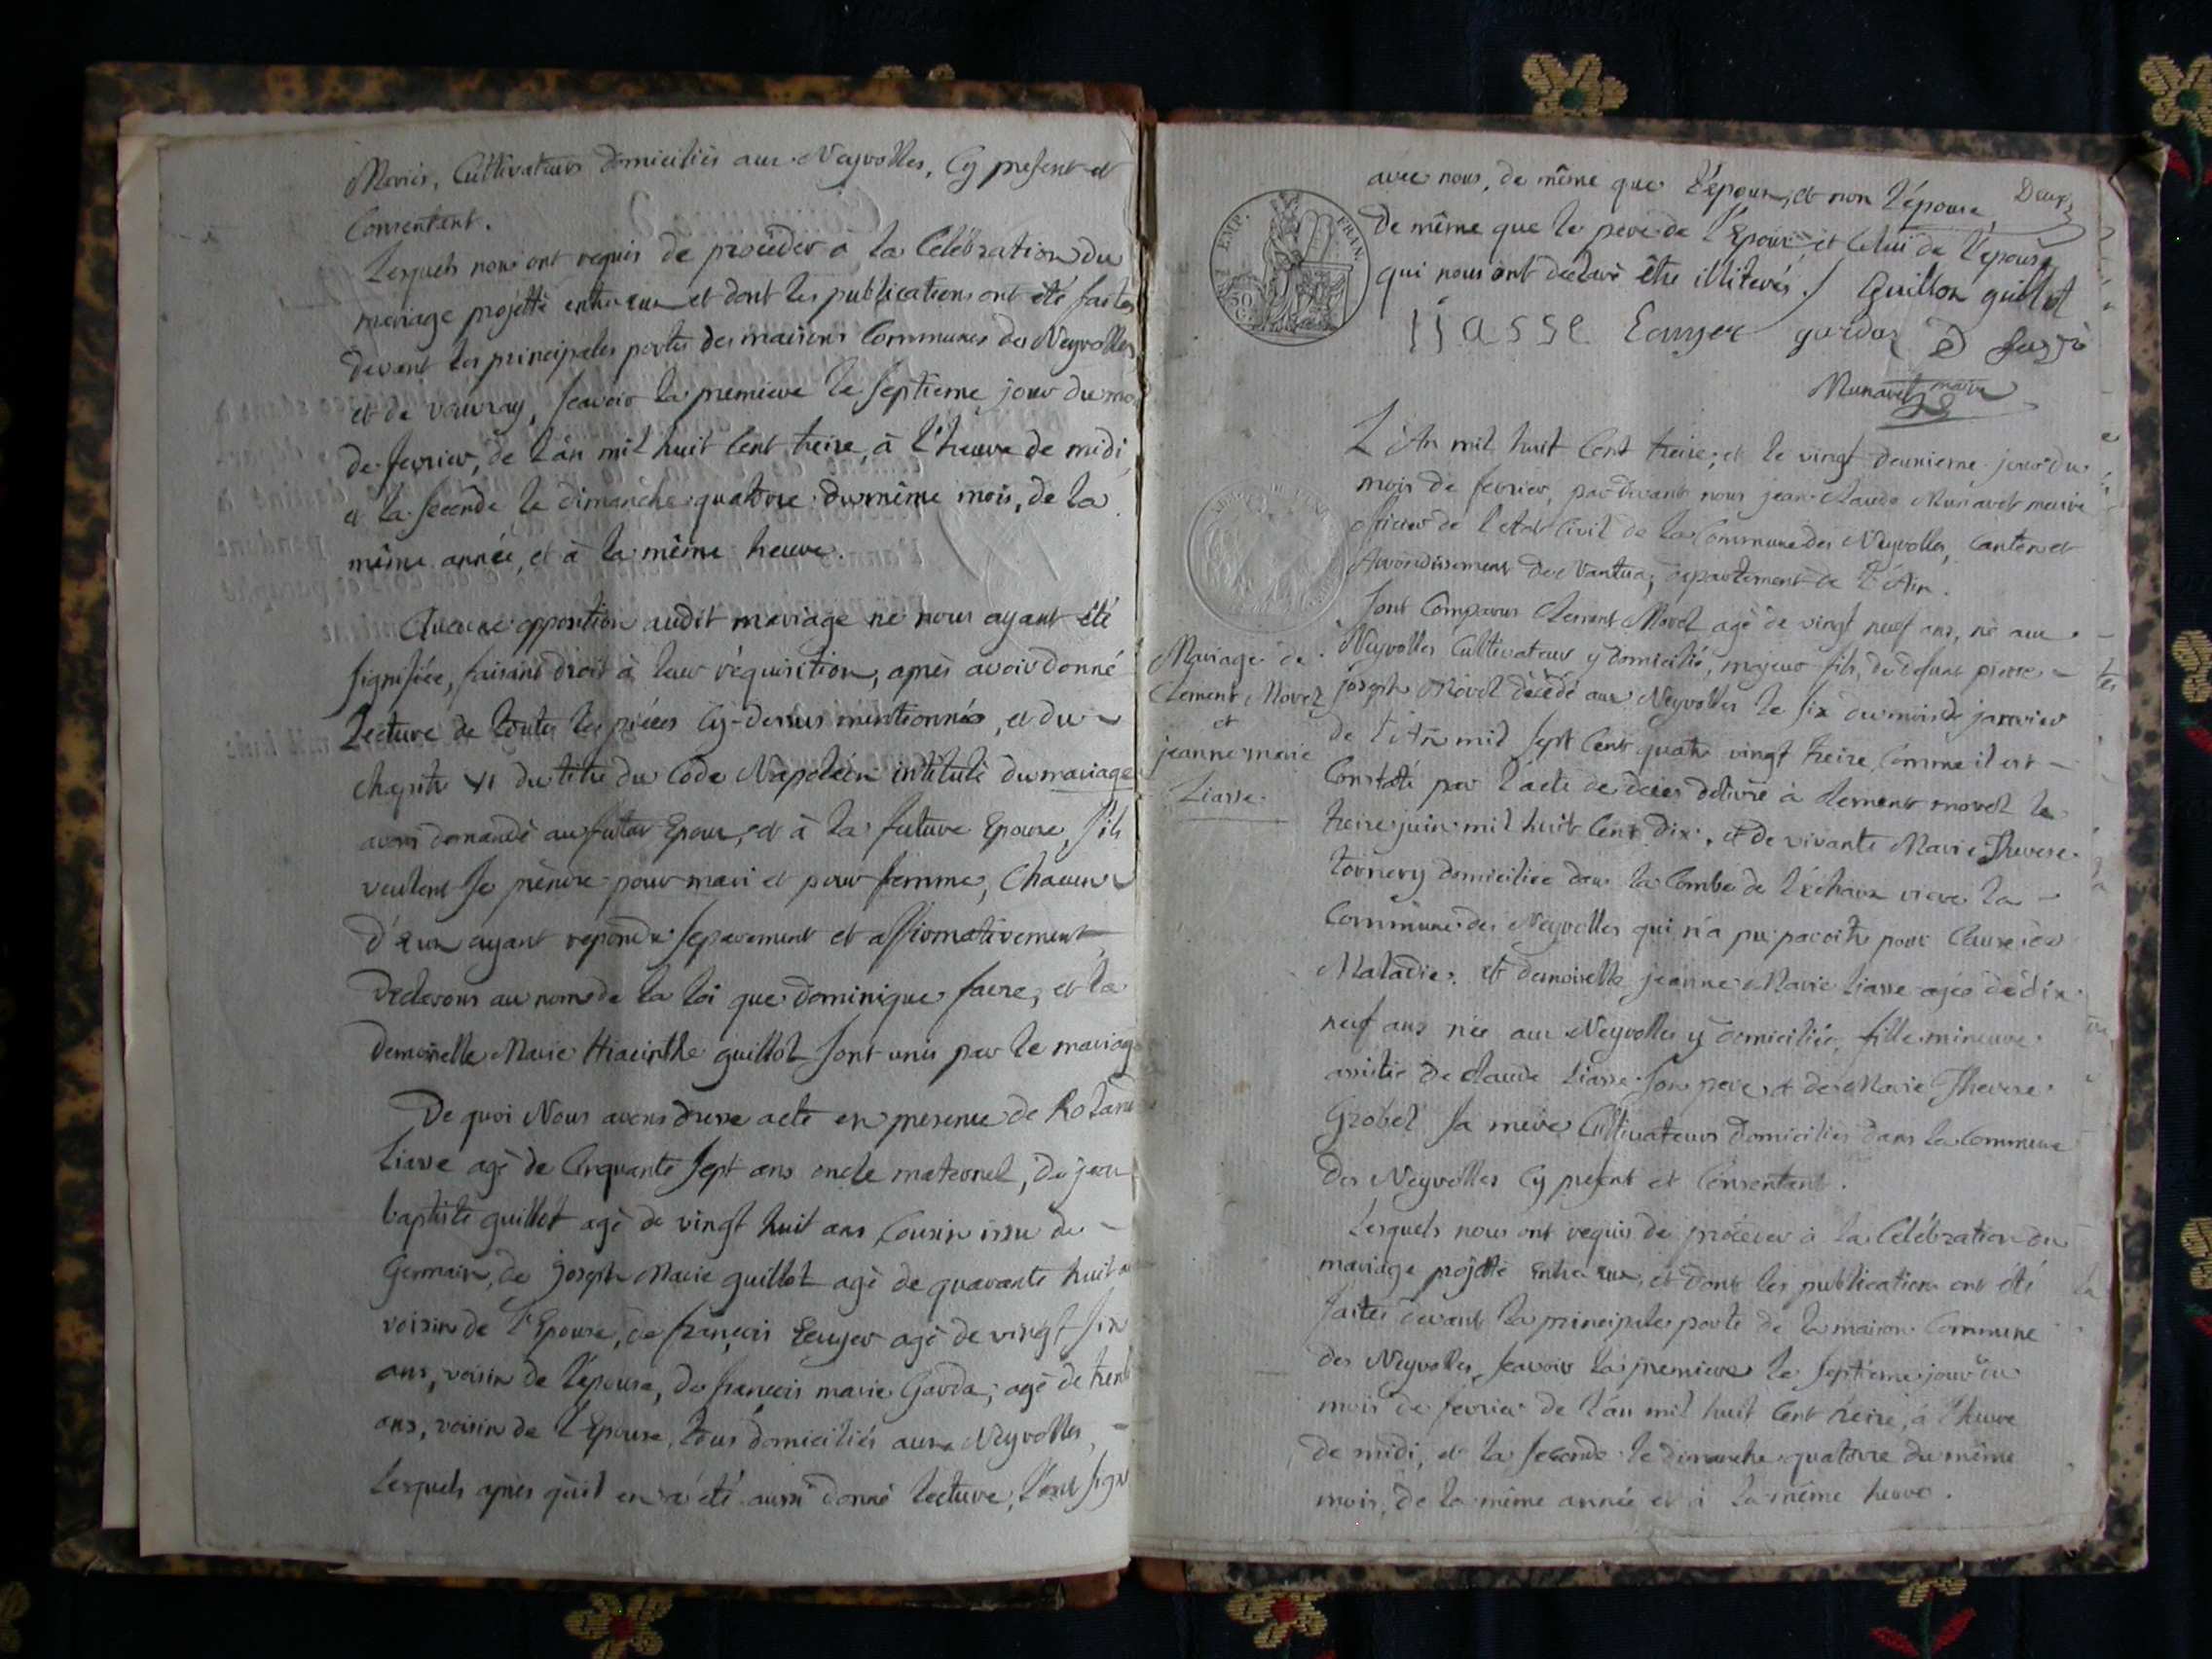 Mariés, Cultivateurs domiciliés aux Neyrolles, Cy present et
Consentant.
Lesquels nous ont requis de procéder à la Célébration du
mariage projetté entre eux et dont les publications ont été faites
devant les principales portes des maisons Communes des Neyrolles
et de vouvray, scavoir la premiere le septieme jour du mo
de fevrier, de l'an mil huit Cent treize, à l'heure de midi
et la seconde le dimanche quatorze du même mois, de la
même année, et à la même heure.
Aucune opposition audit mariage ne nous ayant été
signifiée, faisant droit à leur réquisition, après avoir donné
Lecture de toutes les pièces Cy-dessus mentionnés, et du
chapitre VI du titre du Code Napoléon intitulé du mariage
avons demandé au futur Epoux, et à la future Epouse, s'ils
veulent se prendre pour mari et pour femme, Chacun
d'eux ayant repondu separement et affirmativement,
declarons au nom de la loi que dominique favre, et la
demoiselle Marie Hiacinthe guillot sont unis par le mariag
De quoi Nous avons dressé acte en presence de Roland
Liasse agé de Cinquante sept ans oncle maternel, de jean
baptiste guillot agé de vingt huit ans Cousin issu de
Germain, de joseph Marie guillot agé de quarante huit a
voisin de l'Epouse, de françois Eauger agé de vingt six
ans, voisin de l'épouse, de françois marie Garda, agé de trente
ans, voisin de l'Epouse, tous domiciliés aux Neyrolles,
Lesquels après qu'il en a été aussi donné lecture, l'ont sign
Deux
avec nous, de même que l'époux, et non l'épouse,
de même que le pere de l'Epoux et Celui de l'épouse
qui nous ont declaré être illiterés. / Guillon guillot
liasse Eauger gardaz D
Munavet maire
EMP. FRAN.
50 C.
L'An mil huit Cent treize, et le vingt deuxieme jour du
mois de fevrier, par devant nous jean Claude Munavet maire
officier de l'etat Civil de la Commune des Neyrolles, Canton et
Arrondissement de Nantua, departement de l'Ain.
Mariage de
Clement Morel
et
jeanne marie
Liasse.
Sont Comparus Clement Morel agé de vingt neuf ans, né aux
Neyrolles Cultivateur y domicilié, majeur fils, de defunt pierre
joseph Morel décédé aux Neyrolles le six du mois de janvier
de l'An mil sept Cent quatre vingt treize, Comme il est
Constaté par l'acte de décès délivré à Clement morel le
treize juin mil huit Cent dix, et de vivante Marie Therese
tornery domiciliée dans la Combe de l'échaux riere la
Commune des Neyrolles qui n'a pu paroitre pour Cause de
Maladie, et demoiselle jeanne Marie liasse agée de dix
neuf ans née aux Neyrolles y domiciliée, fille mineure
assistée de Claude Liasse son pere et de Marie Therese
Grobel sa mere Cultivateurs domiciliés dans la Commune
des Neyrolles Cy present et Consentant.
Lesquels nous ont requis de procéder à la Célébration du
mariage projetté entre eux, et dont les publications ont été
faites devant la principale porte de la maison Commune
des Neyrolles, scavoir la premiere le septieme jour du
mois de fevrier de l'an mil huit Cent treize, à l'heure
de midi, et la seconde le dimanche quatorze du même
mois, de la même année et à la même heure.